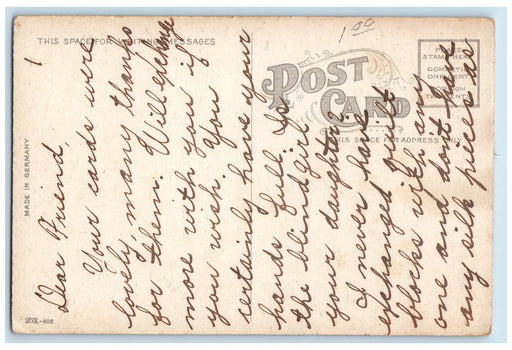 THIS SPACE FOR WRITING MESSAGES
1 00
POST CARD
THIS SPACE FOR ADDRESS ONLY
PLACE
STAMP HERE
DOMESTIC
ONE CENT
FOREIGN
TWO CENTS
MADE IN GERMANY
252.-502
1
Dear Friend
Your cards were
lovely, many thanks
for them. Will exchange
more with you if
you wish. You
certainly have your
hands full. Is
the blind girl
your daughter.
I never had
exchanged quilt
blocks with any
one and don't have
any silk pieces as